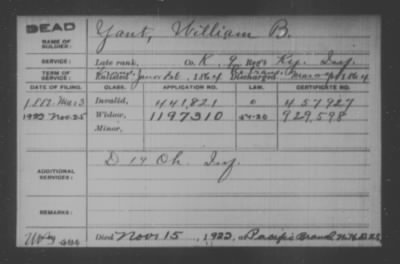 DEAD
NAME OF SOLDIER: Yant, William B.
SERVICE: Late rank, Co. K, 9 Reg't Ky. Inf.
TERM OF SERVICE: Enlisted 1864 Discharged 1864
DATE OF FILING. CLASS. APPLICATION NO. LAW. CERTIFICATE NO.
1882 Mar 3 Invalid, 441,821 0 457927
1922 Nov. 25 Widow, 1197310 929,598
Minor,
ADDITIONAL SERVICES: D 19 Oh. Inf.
REMARKS:
Died Nov. 15, 1922, at Pacific Branch